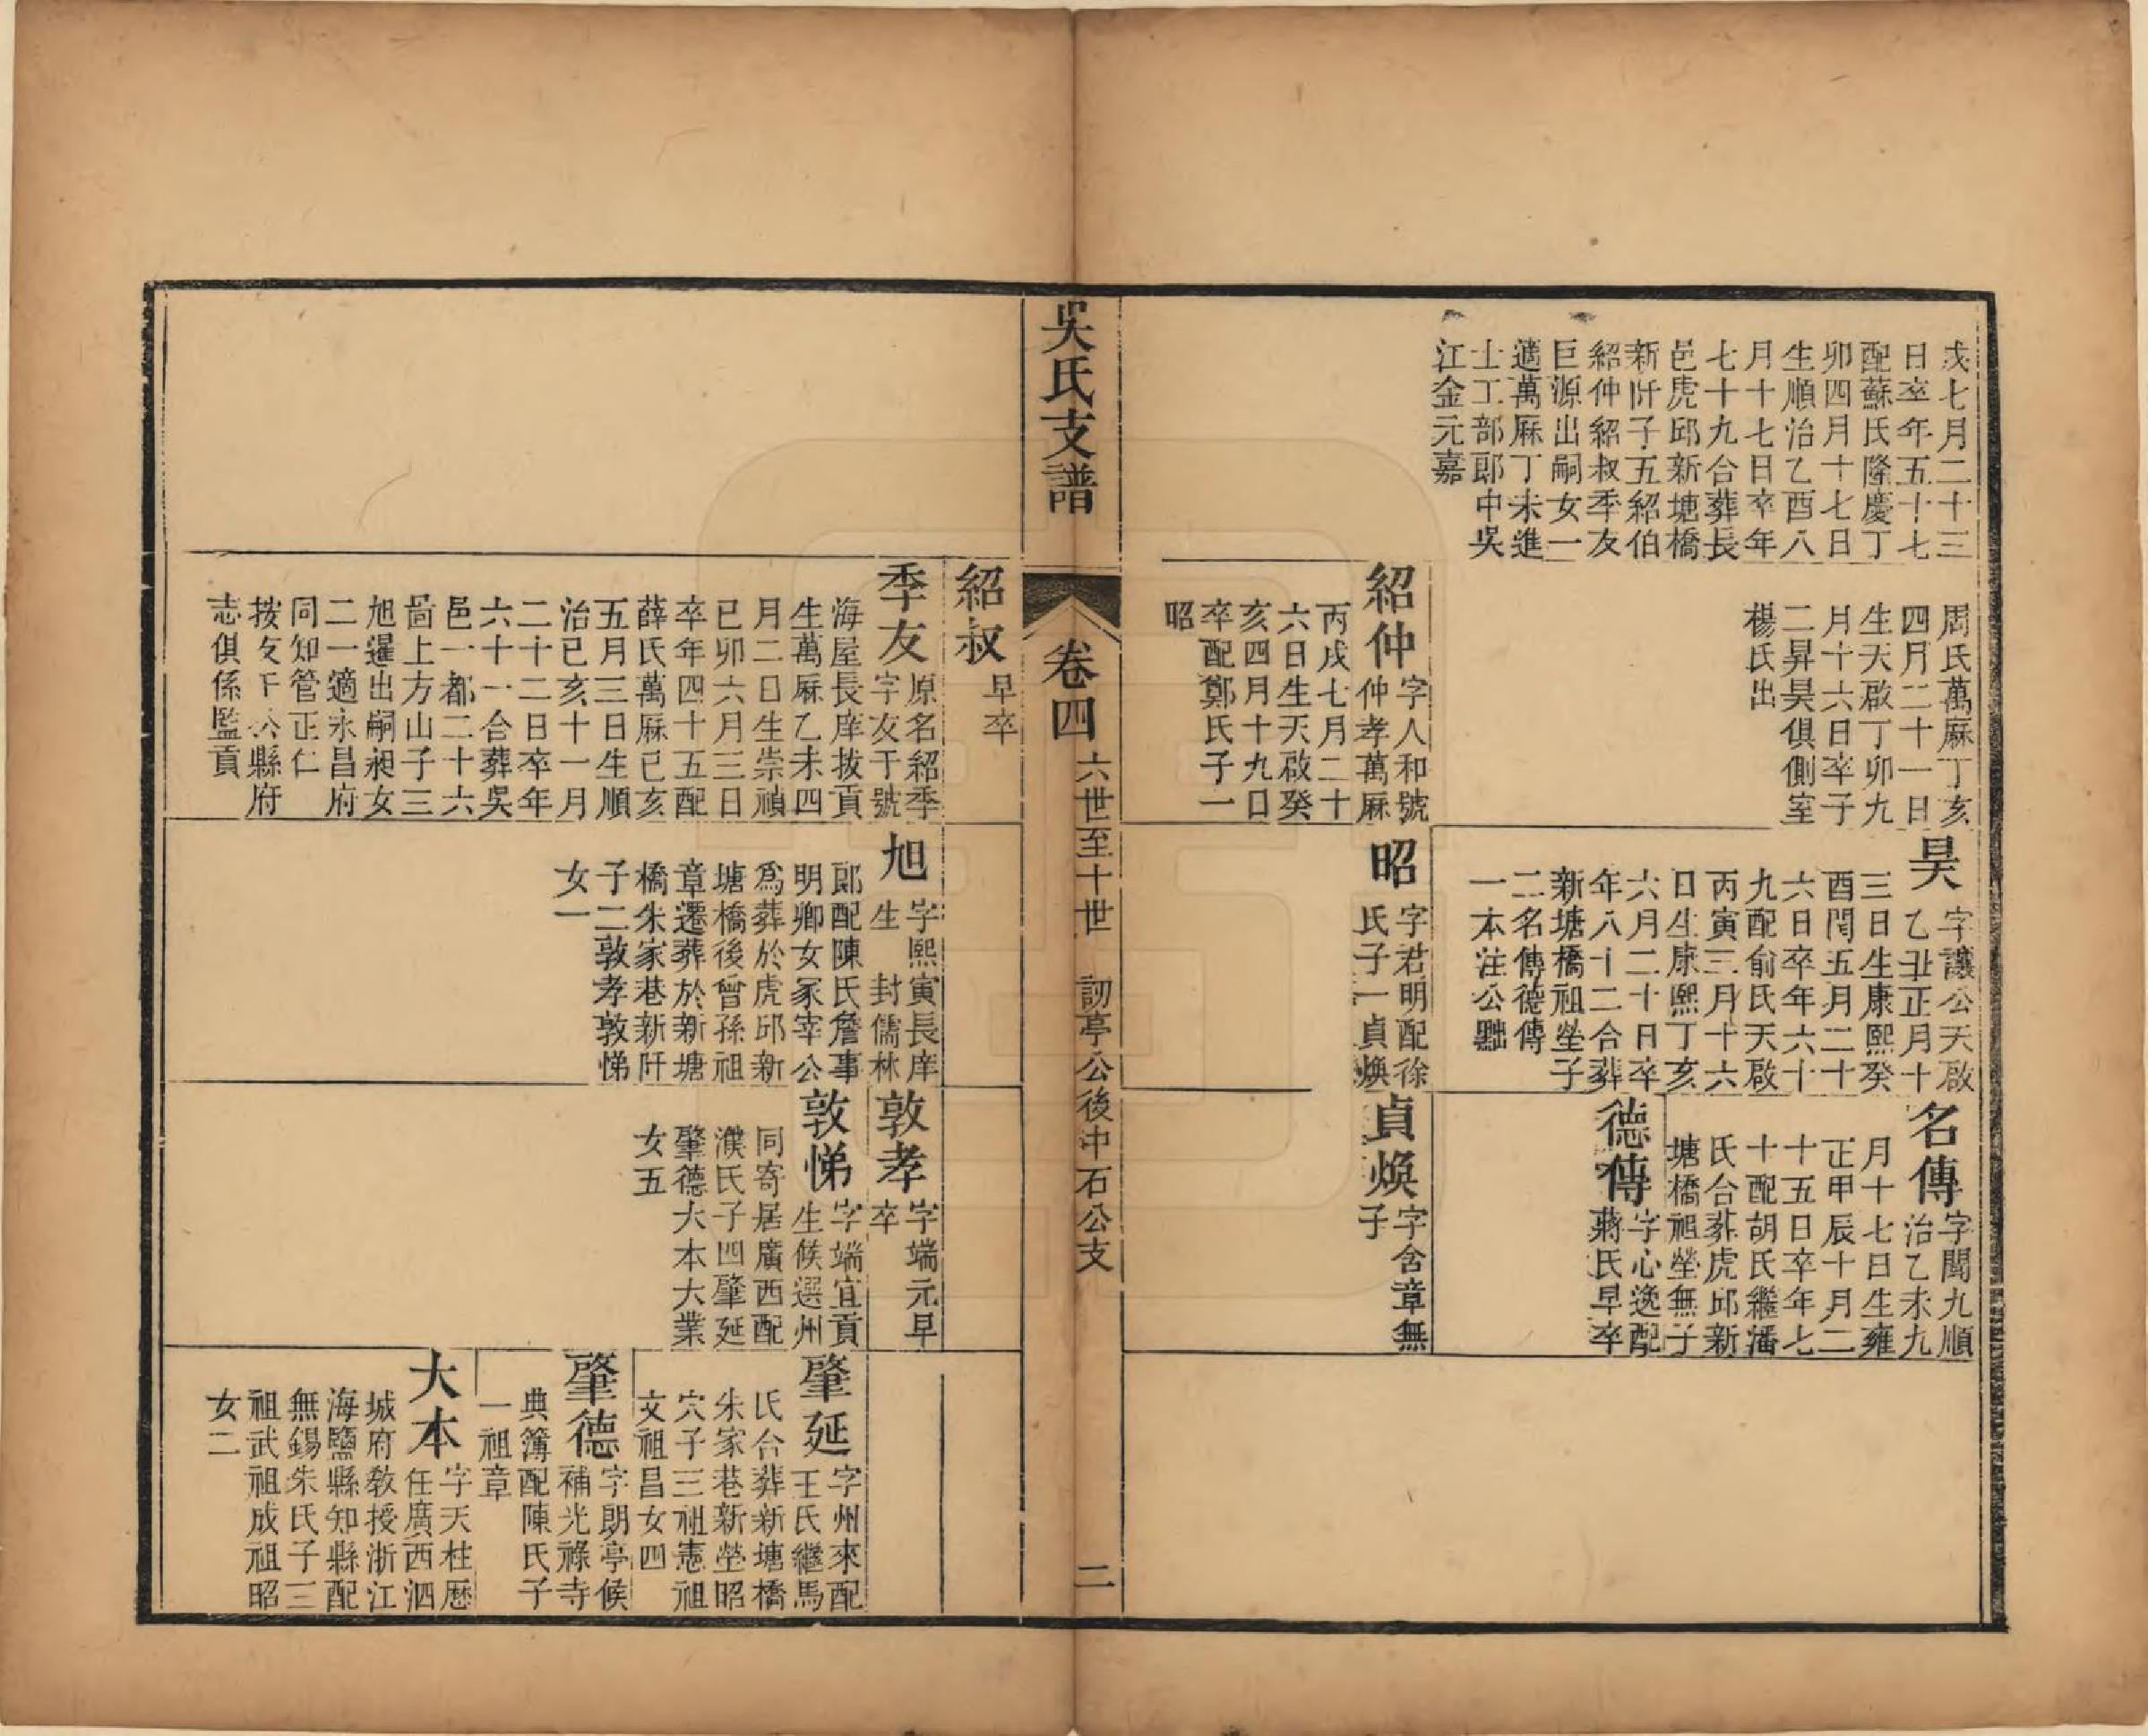 戌七月二十三
日卒年五十七
配蘇氏隆慶丁
卯四月十七日
生順治乙酉八
月十七日卒年
七十九合葬長
邑虎邱新塘橋
新阡子五紹伯
紹仲紹叔季友
巨源出嗣女一
適萬厤丁未進
士工部郎中吳
江金元嘉
周氏萬厤丁亥
四月二十一日
生天啟丁卯九
月十六日卒子
二昇昊俱側室
楊氏出
昊
字讓公天啟
乙丑正月十
三日生康熙癸
酉閏五月二十
六日卒年六十
九配俞氏天啟
丙寅三月十六
日生康熙丁亥
六月二十日卒
年八十二合葬
新塘橋祖塋子
二名傳德傳
一本注公黜
名傳
字聞九順
治乙未九
月十七日生雍
正甲辰十月二
十五日卒年七
十配胡氏繼潘
氏合葬虎邱新
塘橋祖塋無子
德傳
字心逸配
蔣氏早卒
紹仲
字人和號
仲孝萬厤
丙戌七月二十
六日生天啟癸
亥四月十九日
卒配鄭氏子一
昭
昭
字君明配徐
氏子一貞煥
貞煥
字含章無
子
吳氏支譜
卷四
六世至十世 訒亭公後中石公支
二
紹叔
早卒
季友
原名紹季
字友于號
海屋長庠拔貢
生萬厤乙未四
月二日生崇禎
已卯六月三日
卒年四十五配
薛氏萬厤已亥
五月三日生順
治已亥十一月
二十二日卒年
六十一合葬吳
邑一都二十六
啚上方山子三
旭暹出嗣昶女
二一適永昌府
同知管正仁
按友于公縣府
志俱係監貢
旭
字熙寅長庠
生 封儒林
郎配陳氏詹事
明卿女冢宰公
爲葬於虎邱新
塘橋後曾孫祖
章遷葬於新塘
橋朱家巷新阡
子二敦孝敦悌
女一
敦孝
字端元早
卒
敦悌
字端宜貢
生候選州
同寄居廣西配
濮氏子四肇延
肇德大本大業
女五
肇延
字州來配
王氏繼馬
氏合葬新塘橋
朱家巷新塋昭
穴子三祖憲祖
文祖昌女四
肇德
字朗亭候
補光祿寺
典簿配陳氏子
一祖章
大本
字天柱歷
任廣西泗
城府敎授浙江
海鹽縣知縣配
無錫朱氏子三
祖武祖成祖昭
女二